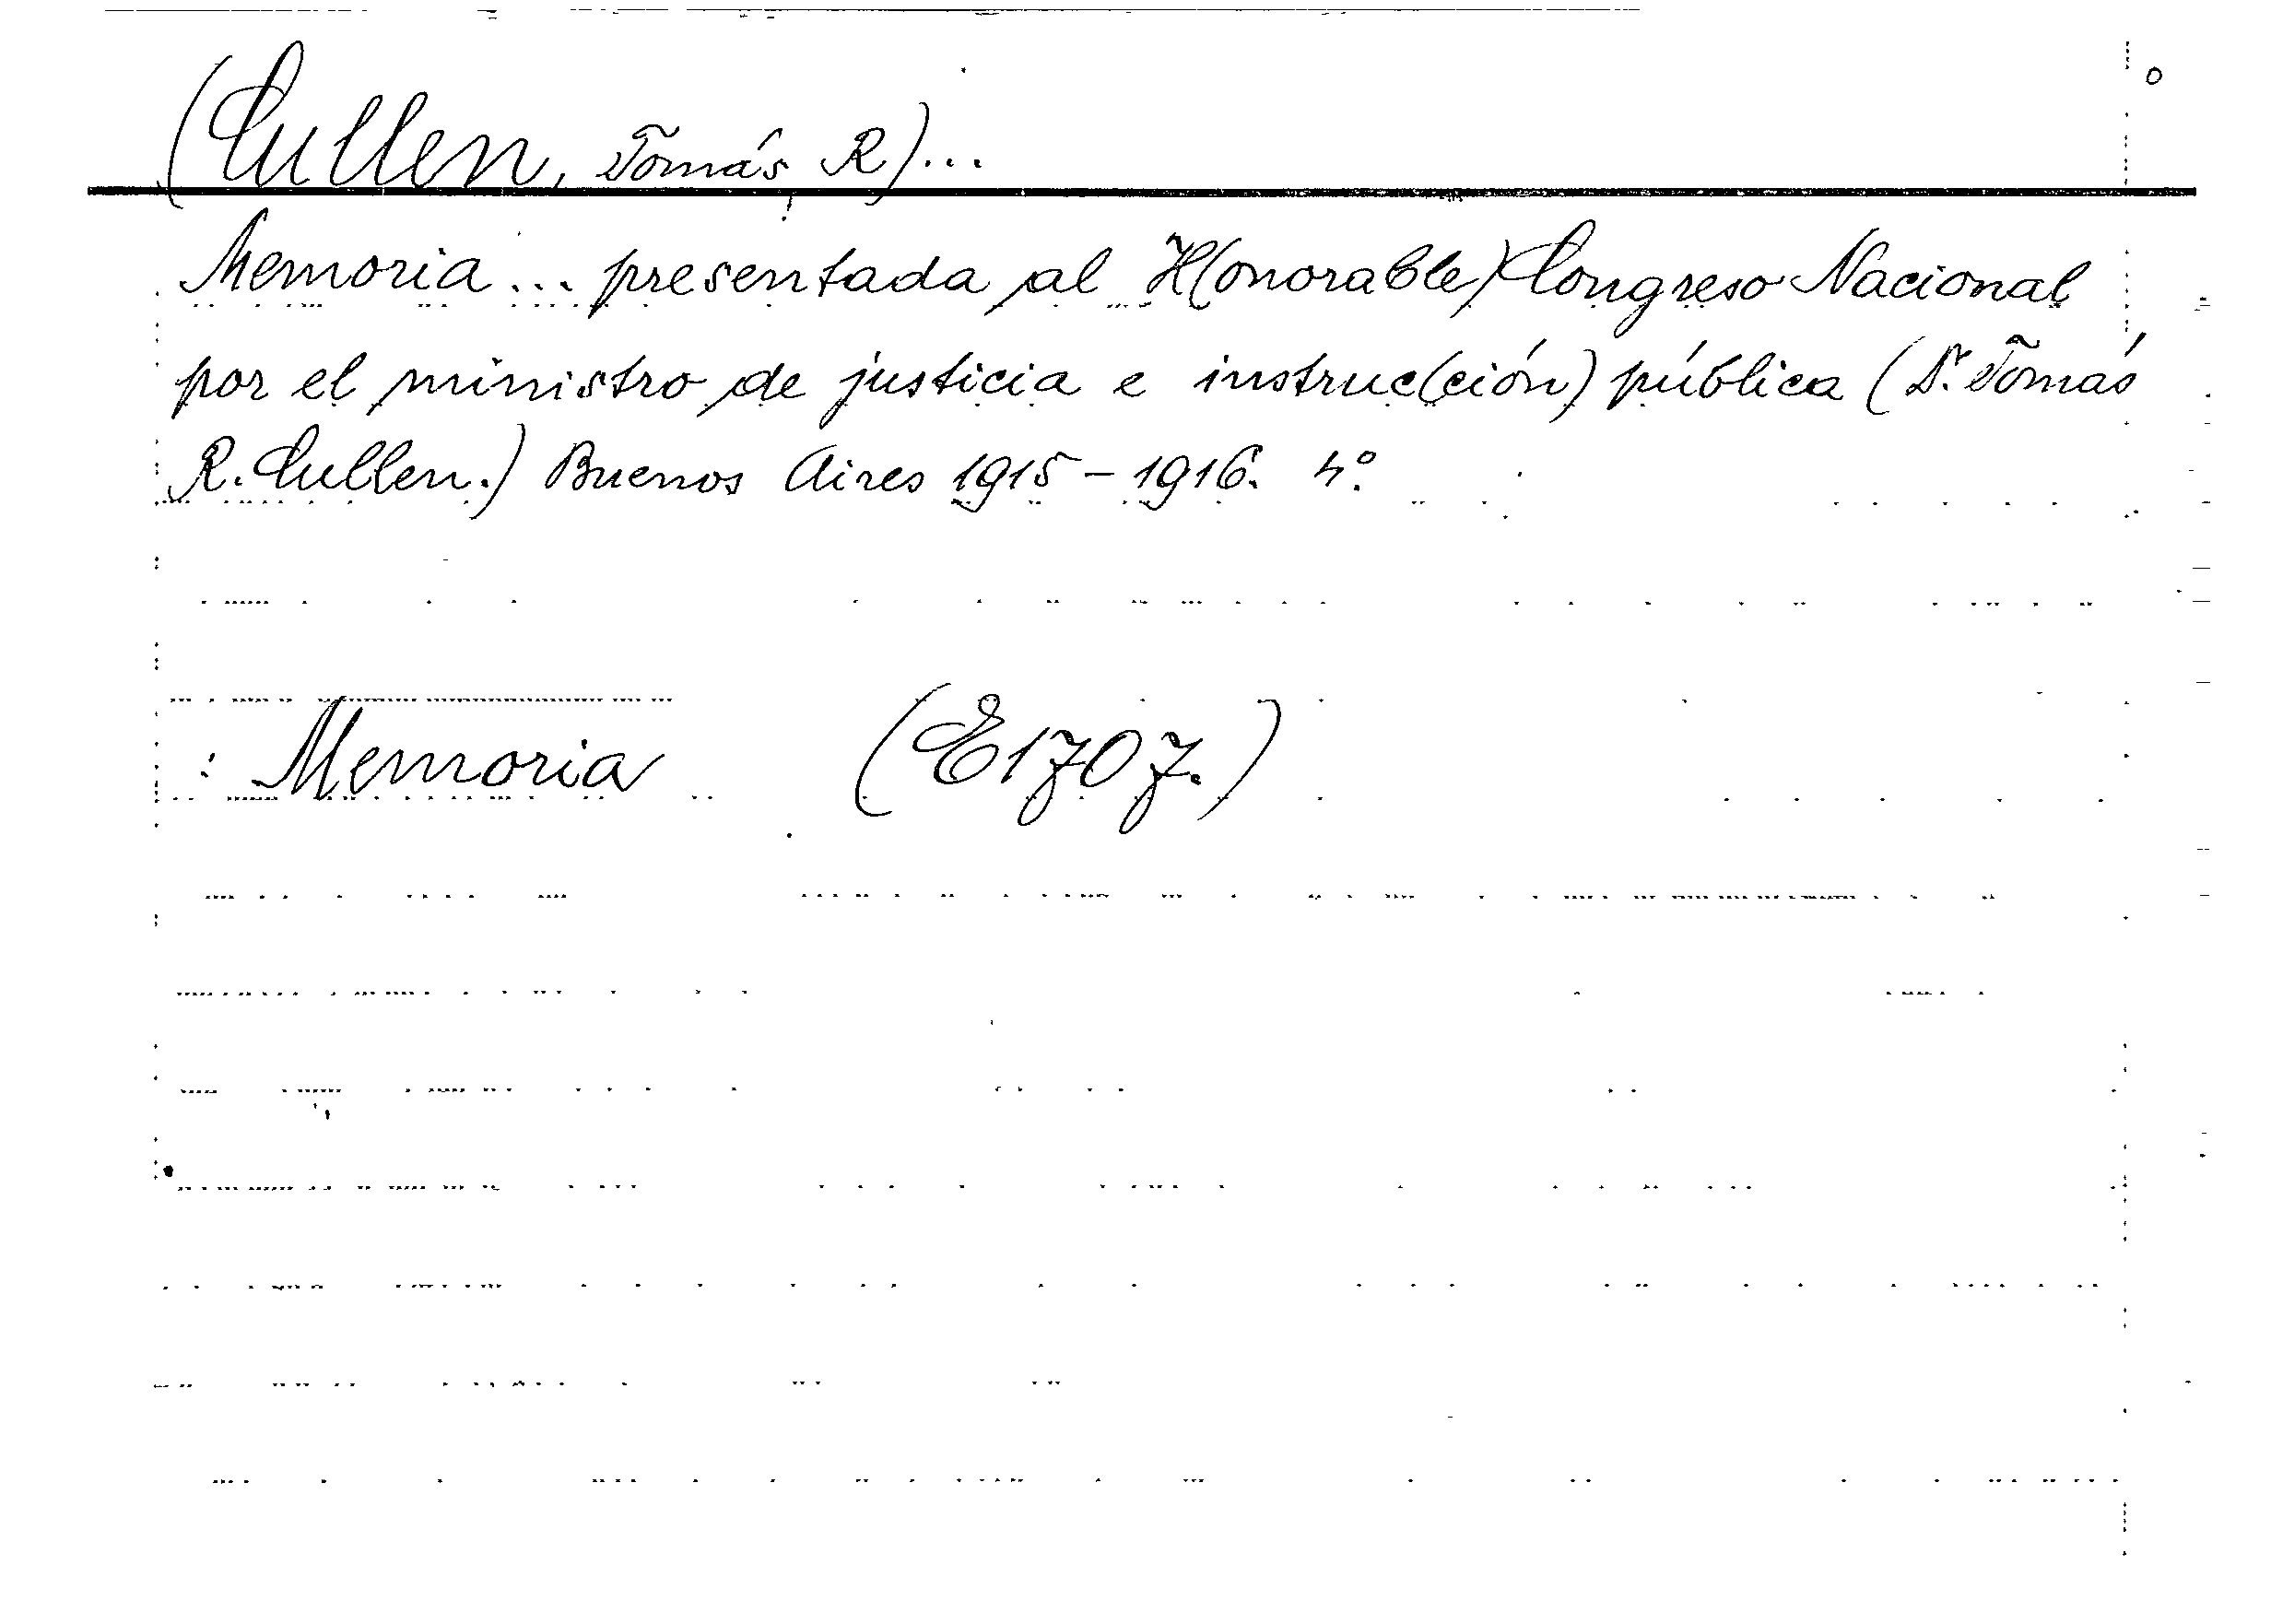 (Cullen, Tomás R)...
Memoria... presentada al H(onorable) Congreso Nacional
por el ministro de justicia e instruc(ción) pública (Dr. Tomás
R. Cullen.) Buenos Aires 1915-1916. 4°
: Memoria (E1707.)